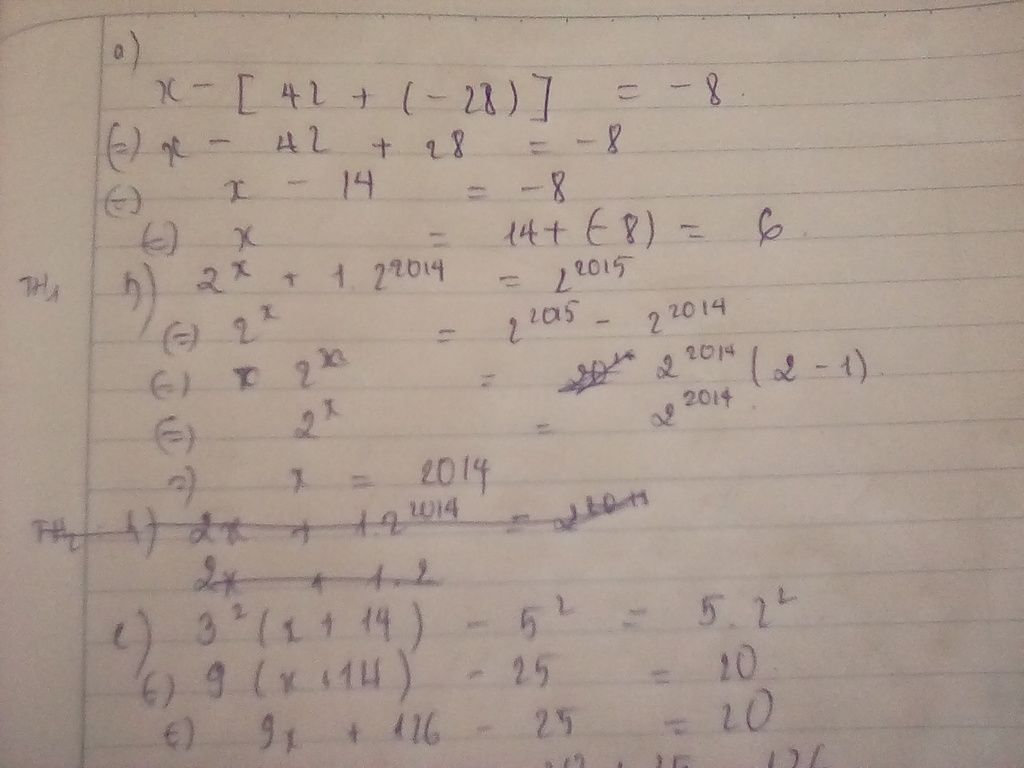 a)
x - [42 + (-28)] = -8.
(=) x - 42 + 28 = -8
(=) x - 14 = -8
(=) x = 14 + (-8) = 6.
TH1 b) 2^x + 1. 2^2014 = 2^2015
(=) 2^x = 2^2015 - 2^2014
(=) 2^x = 2^2014 (2 - 1).
(=) 2^x = 2^2014.
=) x = 2014
TH2 b) 2x + 1.2^2014
2x + 1.2
c) 3^2 (x + 14) - 5^2 = 5. 2^2
(=) 9 (x + 14) - 25 = 20
(=) 9x + 126 - 25 = 20